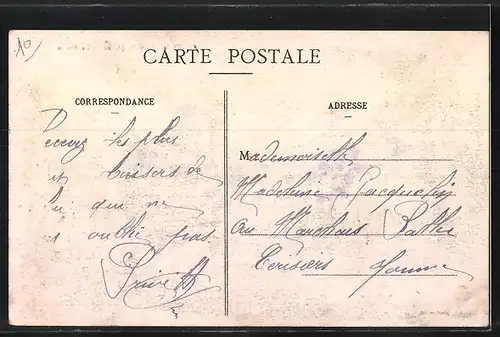 10
CARTE POSTALE
CORRESPONDANCE
ADRESSE
Recevez les plus
baisers de
qui ne
pas
Mademoiselle
Madeleine Jacquelin
Au Marchais
Cerisiers Yonne